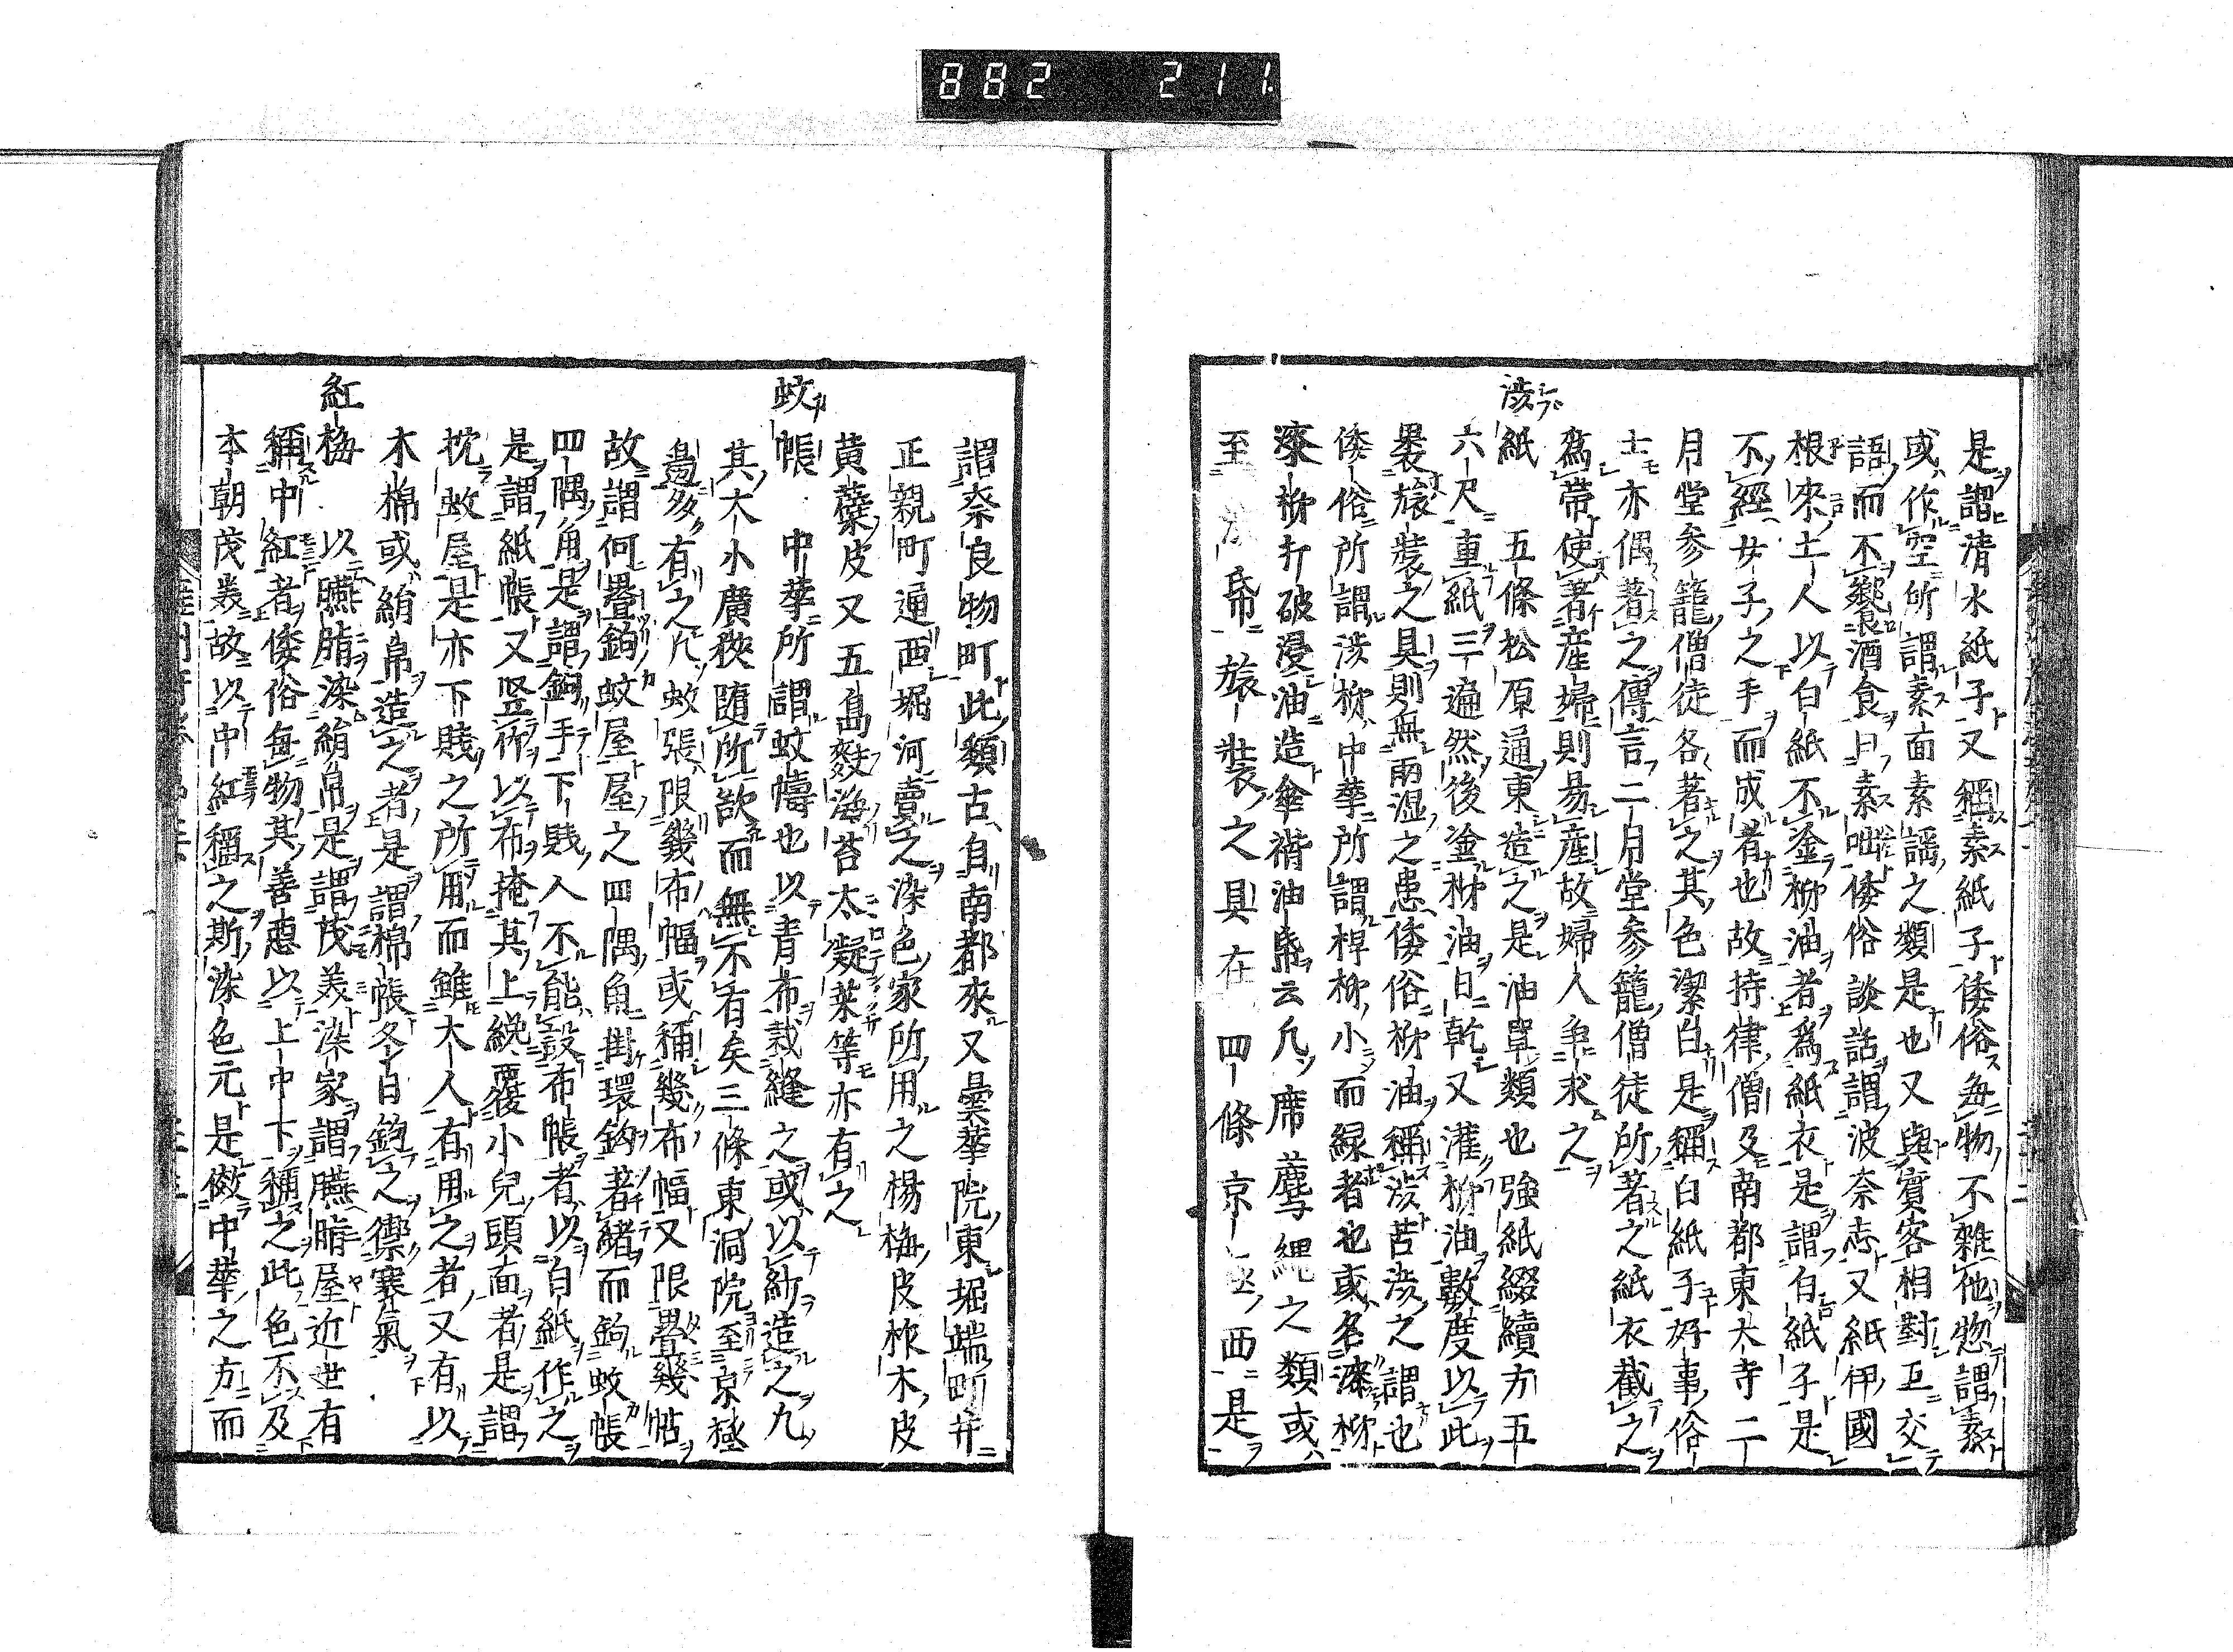 882 211
是謂清水紙子又稱素紙子倭俗毎物不雜他惣謂素
或作空所謂素面素謡之類是也又與賓客相對互交
語而不饗酒食曰素咄倭俗談話謂波奈志又紙伊國
根來土人以白紙不塗柳油者爲紙衣是謂白紙子是
不經女子之手而成者也故持律僧及南都東大寺二
月堂参籠僧徒各著之其色潔白是稱白紙子好事俗
士亦偶著之傳言二月堂参籠僧徒所著之紙衣截之
爲帶使著産婦則易産故婦人争求之
澁紙 五條松原通東造之是油單類也強紙綴續方五
六尺重紙三遍然後塗柹油日乾又灌柹油數度以此
裹旅裝之具則無雨湿之患倭俗柹油稱澁苦澁之謂也
倭俗所謂澁柹中華所謂椑柹小而緑者也或名漆柹
漆柹打破浸油造傘褙油帋云凡席薦縄之類或
至 帋旅裝之具在四條京極西是
謂奈良物町此類古自南都來又曇華院東堀端町并
正親町通西堀河賣之染色家所用之楊梅皮柞木皮
黄蘗皮又五島麩海苔太凝菜等亦有之
蚊帳 中華所謂蚊幬也以青布裁縫之或以紗造之凡
其大小廣狹隨所欲而無不有矣三條東洞院至京極
邊多有之凡蚊張限幾布幅或稱幾布幅又限疊幾帖
故謂何疊鈎蚊屋屋之四隅角掛環鈎著緒而鈎蚊帳
四隅角是謂鈎手下賤人不能設布帳者以白紙作之
是謂紙帳又竪竹以布掩其上總覆小兒頭面者是謂
枕蚊屋是亦下賤之所用而雖大人有用之者又有以
木棉或絹帛造之者是謂棉帳冬日鈎之禦寒氣
紅梅 以臙脂染絹帛是謂茂美染家謂臙脂屋近世有
稱中紅者倭俗毎物其善惡以上中下稱之此色不及
本朝茂美故以中紅稱之斯染色元是倣中華之方而